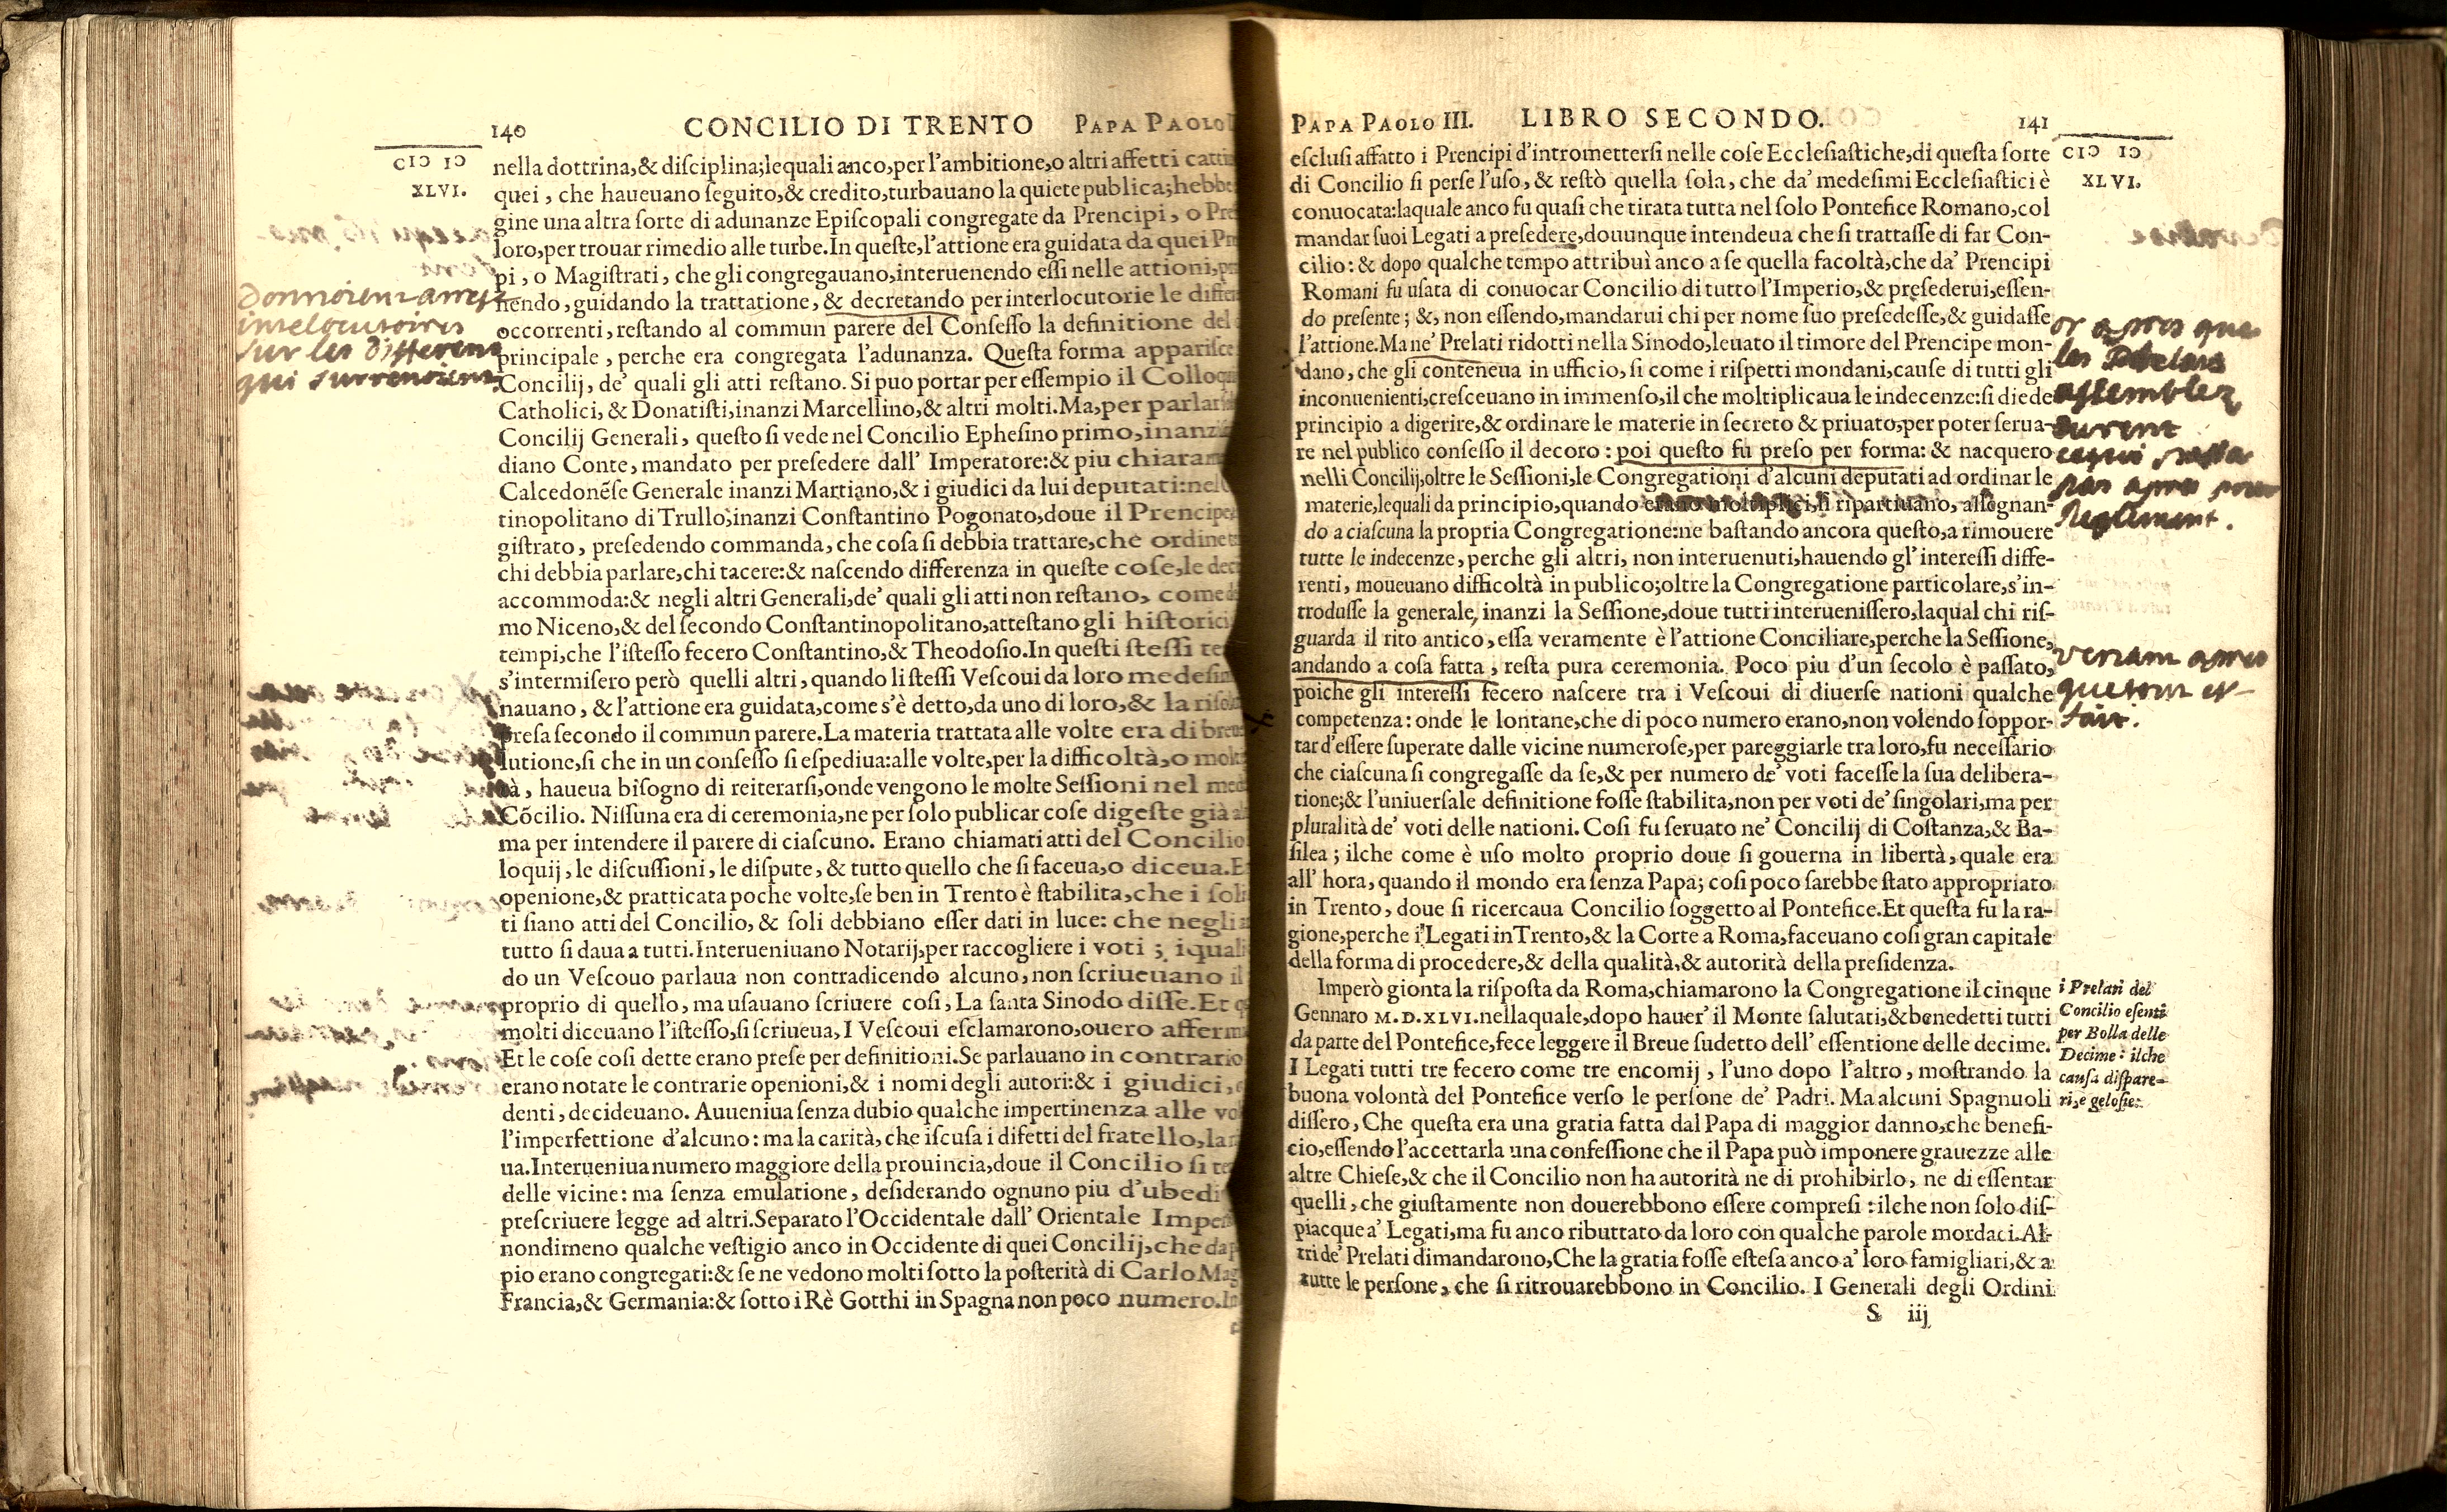 140 CONCILIO DI TRENTO PAPA PAOLO
CIƆ IƆ
XLVI.
nella dottrina,& diſciplina;lequali anco,per l'ambitione,o altri affetti
quei, che haueuano ſeguito,& credito,turbauano la quiete publica;
gine una altra ſorte di adunanze Epiſcopali congregate da Prencipi, o
loro,per trouar rimedio alle turbe.In queſte,l'attione era guidata da quei
pi, o Magiſtrati, che gli congregauano,interuenendo eſſi nelle attioni,
nendo, guidando la trattatione, & decretando per interlocutorie le
occorrenti, reſtando al commun parere del Conſeſſo la definitione
principale, perche era congregata l'adunanza. Queſta forma appariſce
Concilij, de' quali gli atti reſtano. Si puo portar per eſſempio il
Catholici, & Donatiſti,inanzi Marcellino,& altri molti.Ma,per
Concilij Generali, queſto ſi vede nel Concilio Epheſino primo,
diano Conte, mandato per preſedere dall' Imperatore:& piu
Calcedonēſe Generale inanzi Martiano,& i giudici da lui deputati:
tinopolitano di Trullo,inanzi Conſtantino Pogonato,doue il
giſtrato, preſedendo commanda, che coſa ſi debbia trattare,che
chi debbia parlare,chi tacere:& naſcendo differenza in queſte coſe,le
accommoda:& negli altri Generali,de' quali gli atti non reſtano, come
mo Niceno,& del ſecondo Conſtantinopolitano,atteſtano gli hiſtorici
tempi,che l'iſteſſo fecero Conſtantino,& Theodoſio.In queſti ſteſſi
s'intermiſero però quelli altri, quando li ſteſſi Veſcoui da loro
nauano, & l'attione era guidata,come s'è detto,da uno di loro,& la
preſa ſecondo il commun parere.La materia trattata alle volte era di
lutione,ſi che in un conſeſſo ſi eſpediua:alle volte,per la difficoltà,o
tà, haueua biſogno di reiterarſi,onde vengono le molte Seſſioni nel
Cōcilio. Niſſuna era di ceremonia,ne per ſolo publicar coſe digeſte già
ma per intendere il parere di ciaſcuno. Erano chiamati atti del Concilio
loquij, le diſcuſſioni, le diſpute, & tutto quello che ſi faceua,o diceua.
openione,& pratticata poche volte,ſe ben in Trento è ſtabilita,che i
ti ſiano atti del Concilio, & ſoli debbiano eſſer dati in luce: che
tutto ſi daua a tutti.Interueniuano Notarij,per raccogliere i voti; i quali
do un Veſcouo parlaua non contradicendo alcuno,non ſcriueuano il
proprio di quello, ma uſauano ſcriuere coſi, La ſanta Sinodo diſſe.Et
molti diceuano l'iſteſſo,ſi ſcriueua,I Veſcoui eſclamarono,ouero
Et le coſe coſi dette erano preſe per definitioni.Se parlauano in contrario
erano notate le contrarie openioni,& i nomi degli autori:& i giudici,
denti, decideuano. Auueniua ſenza dubio qualche impertinenza alle
l'imperfettione d'alcuno: ma la carità,che iſcuſa i difetti del fratello,
ua.Interueniua numero maggiore della prouincia,doue il Concilio ſi
delle vicine: ma ſenza emulatione, deſiderando ognuno piu
preſcriuere legge ad altri.Separato l'Occidentale dall' Orientale
nondimeno qualche veſtigio anco in Occidente di quei Concilij,che
pio erano congregati:& ſe ne vedono molti ſotto la poſterità di Carlo
Francia,& Germania:& ſotto i Rè Gotthi in Spagna non poco numero.
interlocutoires
sur les differens
PAPA PAOLO III. LIBRO SECONDO. 141
CIƆ IƆ
XLVI.
eſcluſi affatto i Prencipi d'intrometterſi nelle coſe Eccleſiaſtiche,di queſta ſorte
di Concilio ſi perſe l'uſo, & reſtò quella ſola, che da' medeſimi Eccleſiaſtici è
conuocata:laquale anco fu quaſi che tirata tutta nel ſolo Pontefice Romano,col
mandar ſuoi Legati a preſedere,douunque intendeua che ſi trattaſſe di far Con-
cilio: & dopo qualche tempo attribuì anco a ſe quella facoltà,che da' Prencipi
Romani fu uſata di conuocar Concilio di tutto l'Imperio,& preſederui,eſſen-
do preſente; &, non eſſendo,mandarui chi per nome ſuo preſedeſſe,& guidaſſe
l'attione.Ma ne' Prelati ridotti nella Sinodo,leuato il timore del Prencipe mon-
dano, che gli conteneua in ufficio, ſi come i riſpetti mondani,cauſe di tutti gli
inconuenienti,creſceuano in immenſo,il che moltiplicaua le indecenze:ſi diede
principio a digerire,& ordinare le materie in ſecreto & priuato,per poter ſerua-
re nel publico conſeſſo il decoro: poi queſto fu preſo per forma: & nacquero
nelli Concilij,oltre le Seſſioni,le Congregationi d'alcuni deputati ad ordinar le
materie,lequali da principio,quando erano moltiplici,ſi ripartiuano, aſſegnan-
do a ciaſcuna la propria Congregatione:ne baſtando ancora queſto,a rimouere
tutte le indecenze, perche gli altri, non interuenuti,hauendo gl' intereſſi diffe-
renti, moueuano difficoltà in publico;oltre la Congregatione particolare,s'in-
troduſſe la generale, inanzi la Seſſione,doue tutti interueniſſero,laqual chi riſ-
guarda il rito antico, eſſa veramente è l'attione Conciliare,perche la Seſſione,
andando a coſa fatta, reſta pura ceremonia. Poco piu d'un ſecolo è paſſato,
poiche gli intereſſi fecero naſcere tra i Veſcoui di diuerſe nationi qualche
competenza: onde le lontane,che di poco numero erano,non volendo ſoppor-
tar d'eſſere ſuperate dalle vicine numeroſe,per pareggiarle tra loro,fu neceſſario
che ciaſcuna ſi congregaſſe da ſe,& per numero de' voti faceſſe la ſua delibera-
tione;& l'uniuerſale definitione foſſe ſtabilita,non per voti de' ſingolari,ma per
pluralità de' voti delle nationi. Coſi fu ſeruato ne' Concilij di Coſtanza,& Ba-
ſilea; ilche come è uſo molto proprio doue ſi gouerna in libertà, quale era
all' hora, quando il mondo era ſenza Papa; coſi poco ſarebbe ſtato appropriato
in Trento, doue ſi ricercaua Concilio ſoggetto al Pontefice.Et queſta fu la ra-
gione,perche i Legati in Trento,& la Corte a Roma,faceuano coſi gran capitale
della forma di procedere,& della qualità,& autorità della preſidenza.
Imperò gionta la riſpoſta da Roma,chiamarono la Congregatione il cinque
Gennaro M.D.XLVI.nellaquale,dopo hauer' il Monte ſalutati,& benedetti tutti
da parte del Pontefice,fece leggere il Breue ſudetto dell' eſſentione delle decime.
I Legati tutti tre fecero come tre encomij, l'uno dopo l'altro, moſtrando la
buona volontà del Pontefice verſo le perſone de' Padri. Ma alcuni Spagnuoli
diſſero, Che queſta era una gratia fatta dal Papa di maggior danno,che benefi-
cio,eſſendo l'accettarla una confeſſione che il Papa può imponere grauezze alle
altre Chieſe,& che il Concilio non ha autorità ne di prohibirlo, ne di eſſentar
quelli, che giuſtamente non douerebbono eſſere compreſi: ilche non ſolo diſ-
piacque a' Legati,ma fu anco ributtato da loro con qualche parole mordaci.Al-
tri de' Prelati dimandarono,Che la gratia foſſe eſteſa anco a' loro famigliari,& a
tutte le perſone, che ſi ritrouarebbono in Concilio. I Generali degli Ordini
S iij
or apres que
les Prelats
assemblez
eurent
Reglement.
i Prelati del
Concilio eſenti
per Bolla delle
Decime: ilche
cauſa diſpare-
ri,e geloſie: